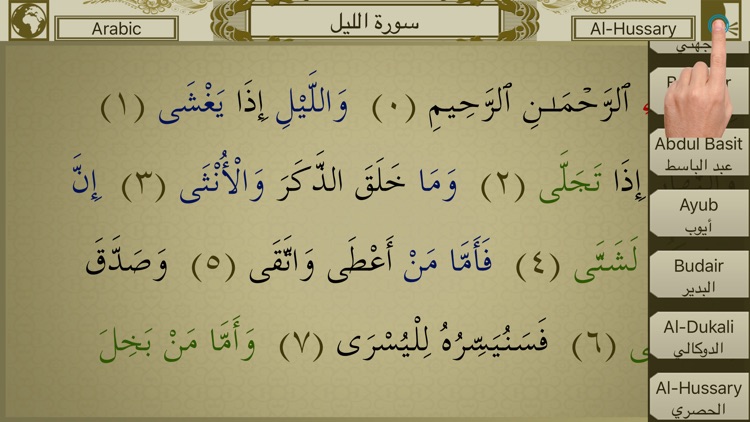 Arabic
سورة الليل
Al-Hussary
ٱلرَّحْمَـٰنِ ٱلرَّحِيمِ (٠) وَاللَّيْلِ إِذَا يَغْشَى (١)
إِذَا تَجَلَّى (٢) وَمَا خَلَقَ الذَّكَرَ وَالْأُنْثَى (٣) إِنَّ
لَشَتَّى (٤) فَأَمَّا مَنْ أَعْطَى وَاتَّقَى (٥) وَصَدَّقَ
(٦) فَسَنُيَسِّرُهُ لِلْيُسْرَى (٧) وَأَمَّا مَنْ بَخِلَ
Abdul Basit
عبد الباسط
Ayub
أيوب
Budair
البدير
Al-Dukali
الدوكالي
Al-Hussary
الحصري